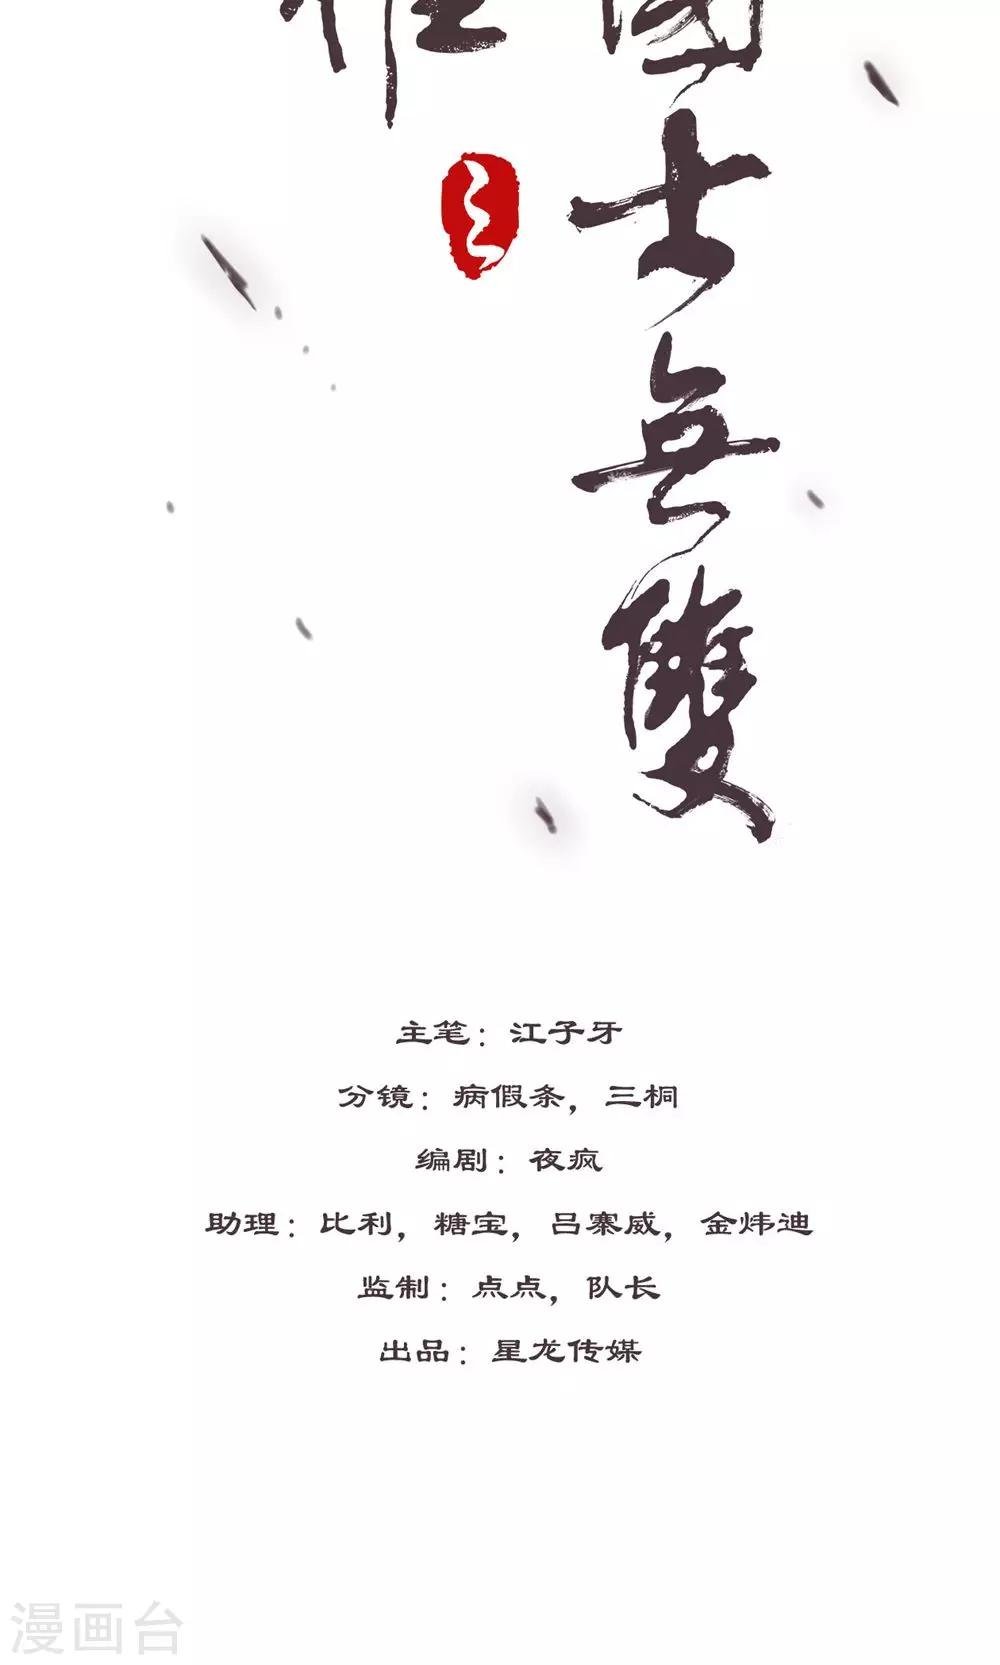 國士無雙
之
主笔：江子牙
分镜：病假条，三桐
编剧：夜疯
助理：比利，糖宝，吕寨威，金炜迪
监制：点点，队长
出品：星龙传媒
漫画台